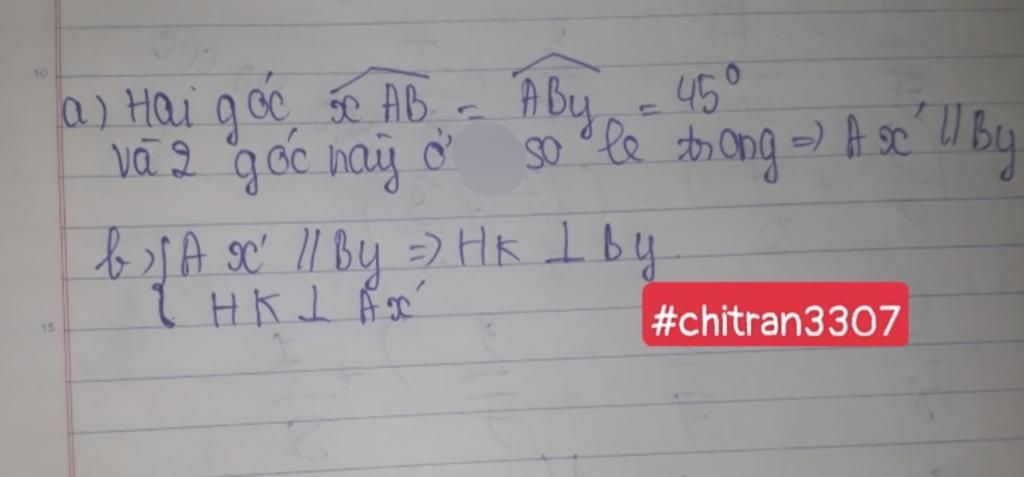 10
a) Hai góc xAB = ABy = 45⁰
và 2 góc này ở so le trong => Ax' // By
b) { Ax' // By => HK ⊥ By
HK ⊥ Ax'
#chitran3307
15